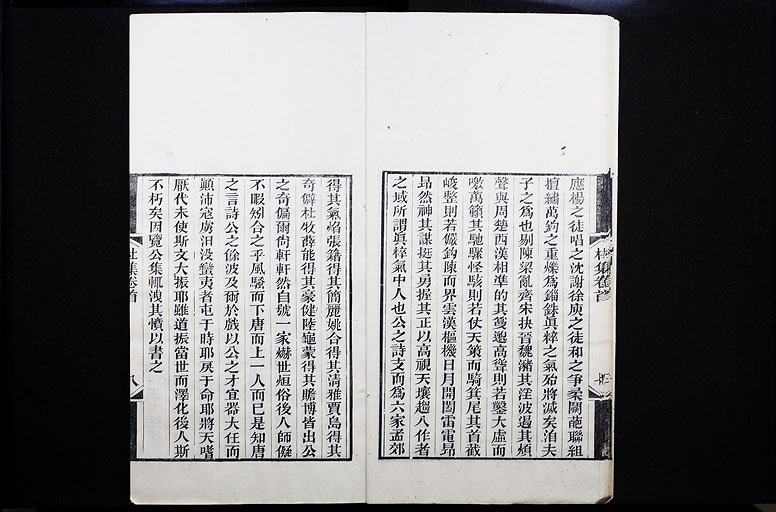 應楊之徒唱之沈謝徐庾之徒和之爭柔鬭葩聯組
擅繡萬鈞之重爍爲錙銖眞粹之氣殆將滅矣洎夫
子之爲也剔陳梁亂齊宋抉晉魏瀦其淫波遏其煩
聲與周楚西漢相準的其夐邈高聳則若鑿大虛而
噭萬籟其馳驟怪駭則若仗天策而騎箕尾其首截
峻整則若儼鈎陳而界雲漢樞機日月開闔雷電昂
昂然神其謀挺其勇握其正以高視天壤趨入作者
之域所謂眞粹氣中人也公之詩支而爲六家孟郊
得其氣焰張籍得其簡麗姚合得其清雅賈島得其
奇僻杜牧薛能得其豪健陸龜蒙得其贍博皆出公
之奇偏爾尙軒軒然自號一家爀世烜俗後人師儗
不暇矧合之乎風騷而下唐而上一人而已是知唐
之言詩公之餘波及爾於戲以公之才宜器大任而
顚沛寇虜汩没蠻夷者屯于時耶戾于命耶將天嗜
厭代未使斯文大振耶雖道振當世而澤化後人斯
不朽矣因覽公集輒洩其憤以書之
杜集卷首
杜集卷首
八